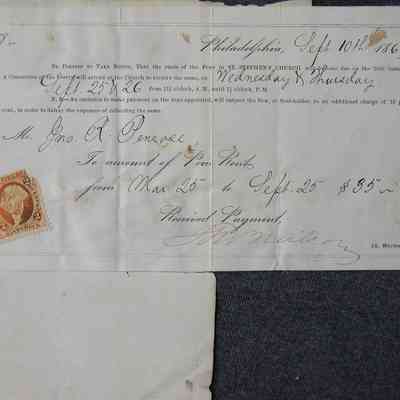 Philadelphia, Sept 10th 186
Be Pleased to Take Notice, That the rents of the Pews in ST. STEPHEN'S CHURCH due on the 25th
A Committee of the Vestry will attend at the Church to receive the same, on Wednesday & Thursday
Sept. 25 & 26 from 11½ o'clock, A.M. until 1½ o'clock, P.M.
N. B.—An omission to make payment at the time appointed, will subject the Pew, or Seat-holder, to an additional charge of 10
cent., in order to defray the expense of collecting the same.
Mr Jno. R. Penrose
To amount of Pew Rent
from Mar 25 to Sept. 25 $35
Received Payment,